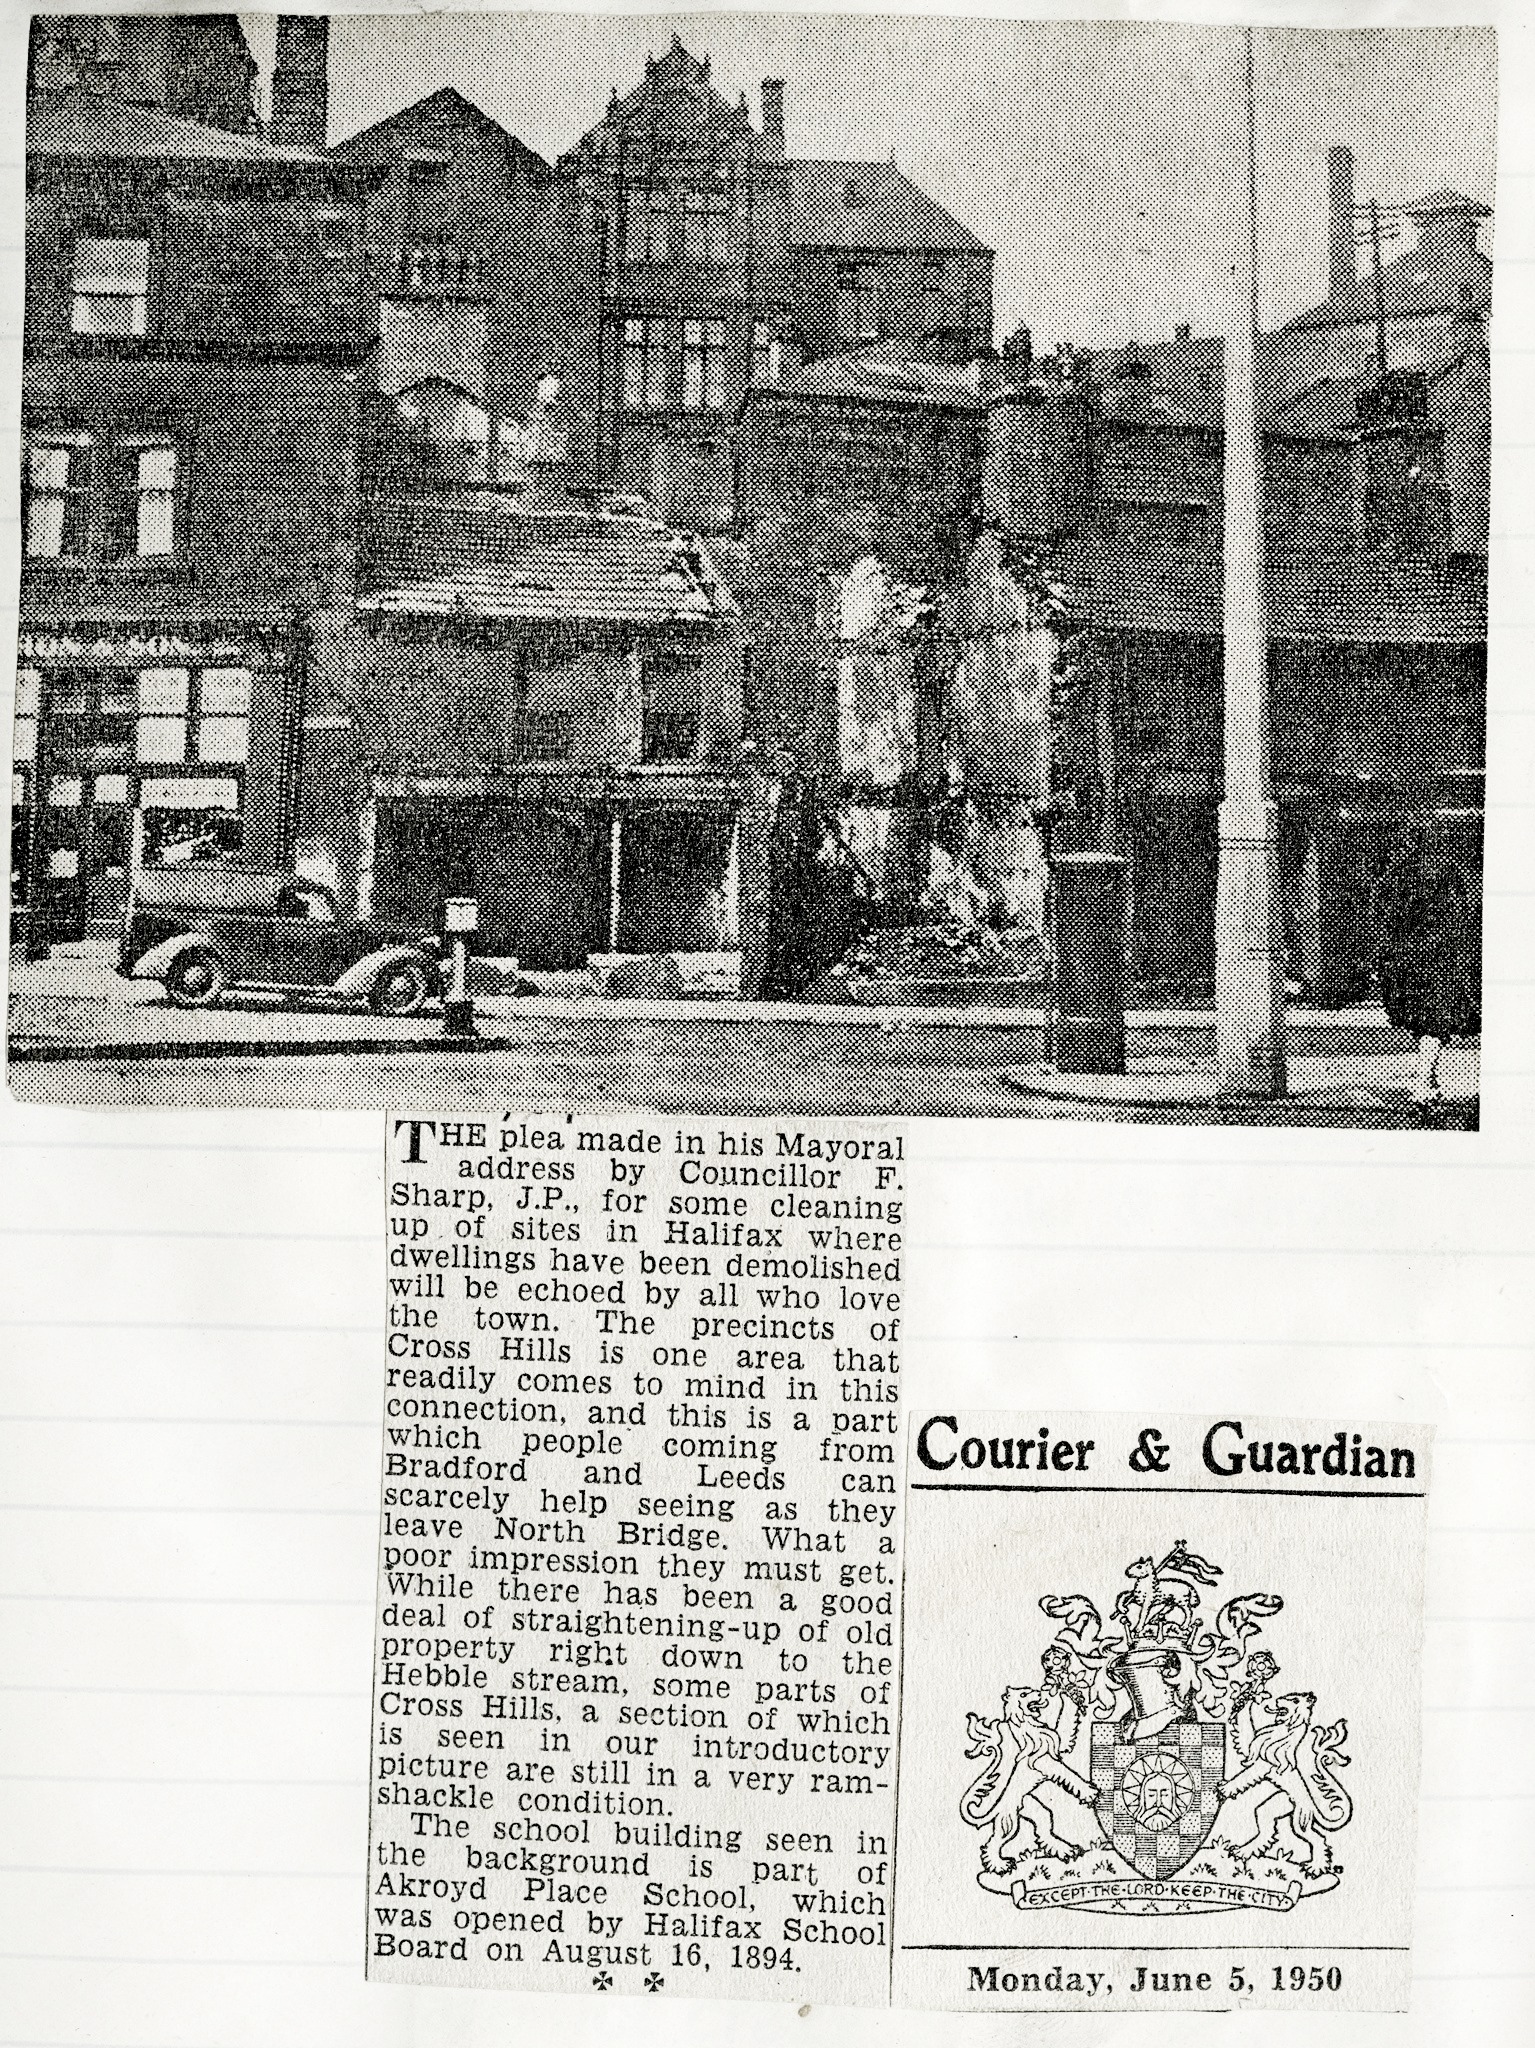 THE plea made in his Mayoral
address by Councillor F.
Sharp, J.P., for some cleaning
up of sites in Halifax where
dwellings have been demolished
will be echoed by all who love
the town. The precincts of
Cross Hills is one area that
readily comes to mind in this
connection, and this is a part
which people coming from
Bradford and Leeds can
scarcely help seeing as they
leave North Bridge. What a
poor impression they must get.
While there has been a good
deal of straightening-up of old
property right down to the
Hebble stream, some parts of
Cross Hills, a section of which
is seen in our introductory
picture are still in a very ram-
shackle condition.
The school building seen in
the background is part of
Akroyd Place School, which
was opened by Halifax School
Board on August 16, 1894.
Courier & Guardian
EXCEPT·THE·LORD·KEEP·THE·CITY
Monday, June 5, 1950